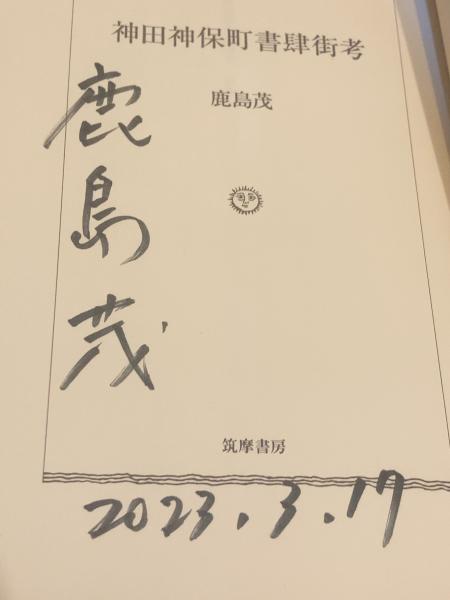 神田神保町書肆街考
鹿島茂
鹿島茂
筑摩書房
2023.3.17